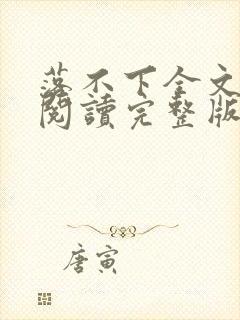 落不下全文
閱讀完整版
唐寅